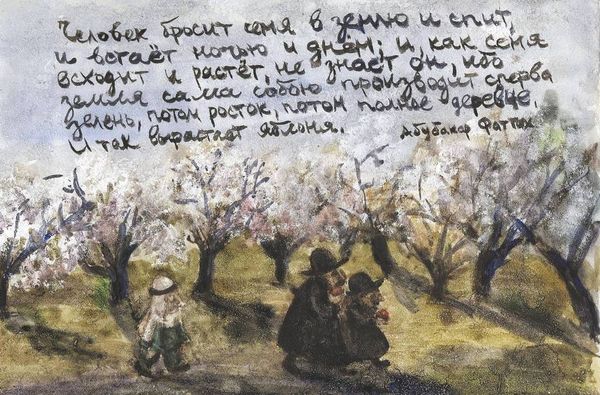 Человек бросит семя в землю и спит,
и встаёт ночью и днём; и, как семя
всходит и растёт, не знает он, ибо
земля сама собою производит сперва
зелень, потом росток, потом полное деревце,
и так вырастает яблоня.
Абубакар Фаттах